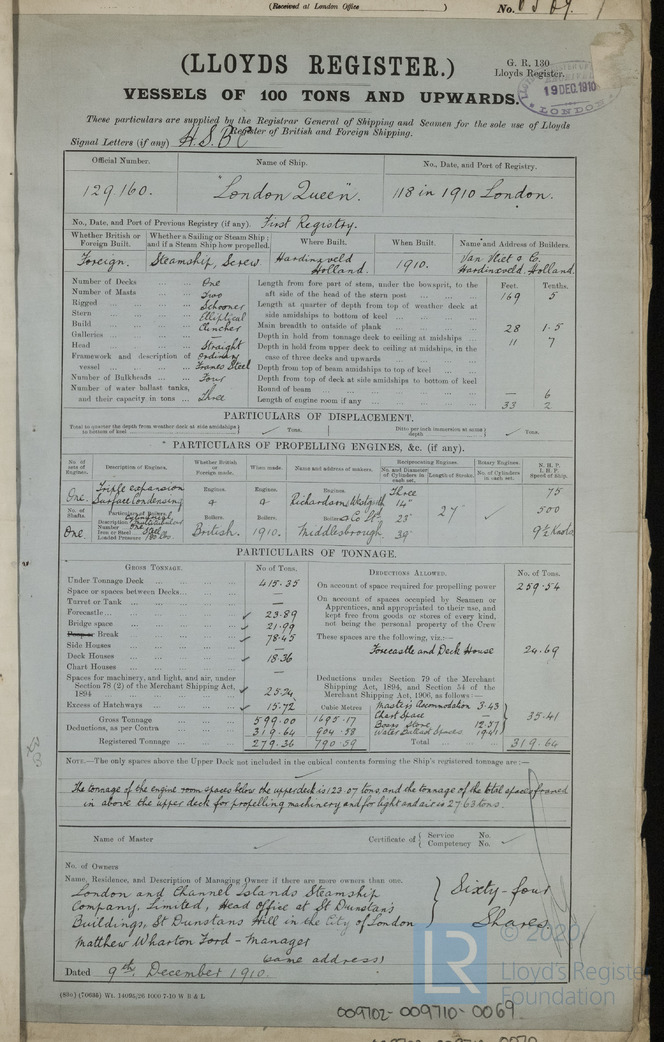 (Received at London Office )
No.
(LLOYDS REGISTER.)
G. R. 130
Lloyds Register.
19 DEC. 1910
LONDON
VESSELS OF 100 TONS AND UPWARDS.
These particulars are supplied by the Registrar General of Shipping and Seamen for the sole use of Lloyds
Register of British and Foreign Shipping.
Signal Letters (if any)
Official Number. Name of Ship. No., Date, and Port of Registry.
129.160. "London Queen". 118 in 1910 London.
No., Date, and Port of Previous Registry (if any). First Registry.
Whether British or Foreign Built. Whether a Sailing or Steam Ship; and if a Steam Ship how propelled. Where Built. When Built. Name and Address of Builders.
Foreign. Steamship, Screw. Hardinxveld Holland. 1910. Van Vliet & Co. Hardinxveld. Holland.
Number of Decks One
Number of Masts Two
Rigged Schooner
Stern Elliptical
Build Clincher
Galleries —
Head Straight
Framework and description of vessel Ordinary Frames Steel
Number of Bulkheads Four
Number of water ballast tanks, and their capacity in tons Three
Feet. Tenths.
Length from fore part of stem, under the bowsprit, to the aft side of the head of the stern post 169 5
Length at quarter of depth from top of weather deck at side amidships to bottom of keel
Main breadth to outside of plank 28 1.5
Depth in hold from tonnage deck to ceiling at midships 11 7
Depth in hold from upper deck to ceiling at midships, in the case of three decks and upwards
Depth from top of beam amidships to top of keel
Depth from top of deck at side amidships to bottom of keel
Round of beam — 6
Length of engine room if any 33 2
PARTICULARS OF DISPLACEMENT.
Total to quarter the depth from weather deck at side amidships to bottom of keel Tons. Ditto per inch immersion at same depth Tons.
PARTICULARS OF PROPELLING ENGINES, &c. (if any).
No. of sets of Engines. Description of Engines. Whether British or Foreign made. When made. Name and address of makers. Reciprocating Engines. No. and Diameter of Cylinders in each set. Length of Stroke. Rotary Engines. No. of Cylinders in each set. N. H. P. I. H. P. Speed of Ship.
One. Triple expansion Surface Condensing Engines. Engines. Engines. Richardson, Westgarth Three 14" 27" 75
No. of Shafts. Particulars of Boilers. Boilers. Boilers. Boilers. & Co Ltd 23" 500
One. Description Number One Iron or Steel Steel Loaded Pressure British. 1910. Middlesbrough. 39" 9½ Knots
PARTICULARS OF TONNAGE.
GROSS TONNAGE. No of Tons.
Under Tonnage Deck 415.35
Space or spaces between Decks —
Turret or Tank —
Forecastle 23.89
Bridge space 21.99
Poop or Break 78.45
Side Houses —
Deck Houses 18.36
Chart Houses —
Spaces for machinery, and light, and air, under Section 78 (2) of the Merchant Shipping Act, 1894 25.24
Excess of Hatchways 15.72
Cubic Metres
Gross Tonnage 599.00 1695.17
Deductions, as per Contra 319.64 904.58
Registered Tonnage 279.36 790.59
DEDUCTIONS ALLOWED. No. of Tons.
On account of space required for propelling power 259.54
On account of spaces occupied by Seamen or Apprentices, and appropriated to their use, and kept free from goods or stores of every kind, not being the personal property of the Crew
These spaces are the following, viz.:—
Forecastle and Deck House 24.69
Deductions under Section 79 of the Merchant Shipping Act, 1894, and Section 54 of the Merchant Shipping Act, 1906, as follows:—
Master's Accomodation 3.43
Chart Space —
Boats. Store 12.57
Water Ballast Spaces 19.41
35.41
Total 319.64
NOTE.—The only spaces above the Upper Deck not included in the cubical contents forming the Ship's registered tonnage are:—
The tonnage of the engine room spaces below the upper deck is 123.07 tons, and the tonnage of the total spaces framed
in above the upper deck for propelling machinery and for light and air is 27.63 tons.
Name of Master Certificate of { Service No. Competency No.
No. of Owners
Name, Residence, and Description of Managing Owner if there are more owners than one.
London and Channel Islands Steamship
Company, Limited, Head Office at St Dunstan's
Buildings, St Dunstans Hill in the City of London
Matthew Wharton Ford - Manager
(same address)
Sixty-four
Shares
Dated 9th December 1910.
LR © 2020 Lloyd's Register Foundation
009702-009710-0069